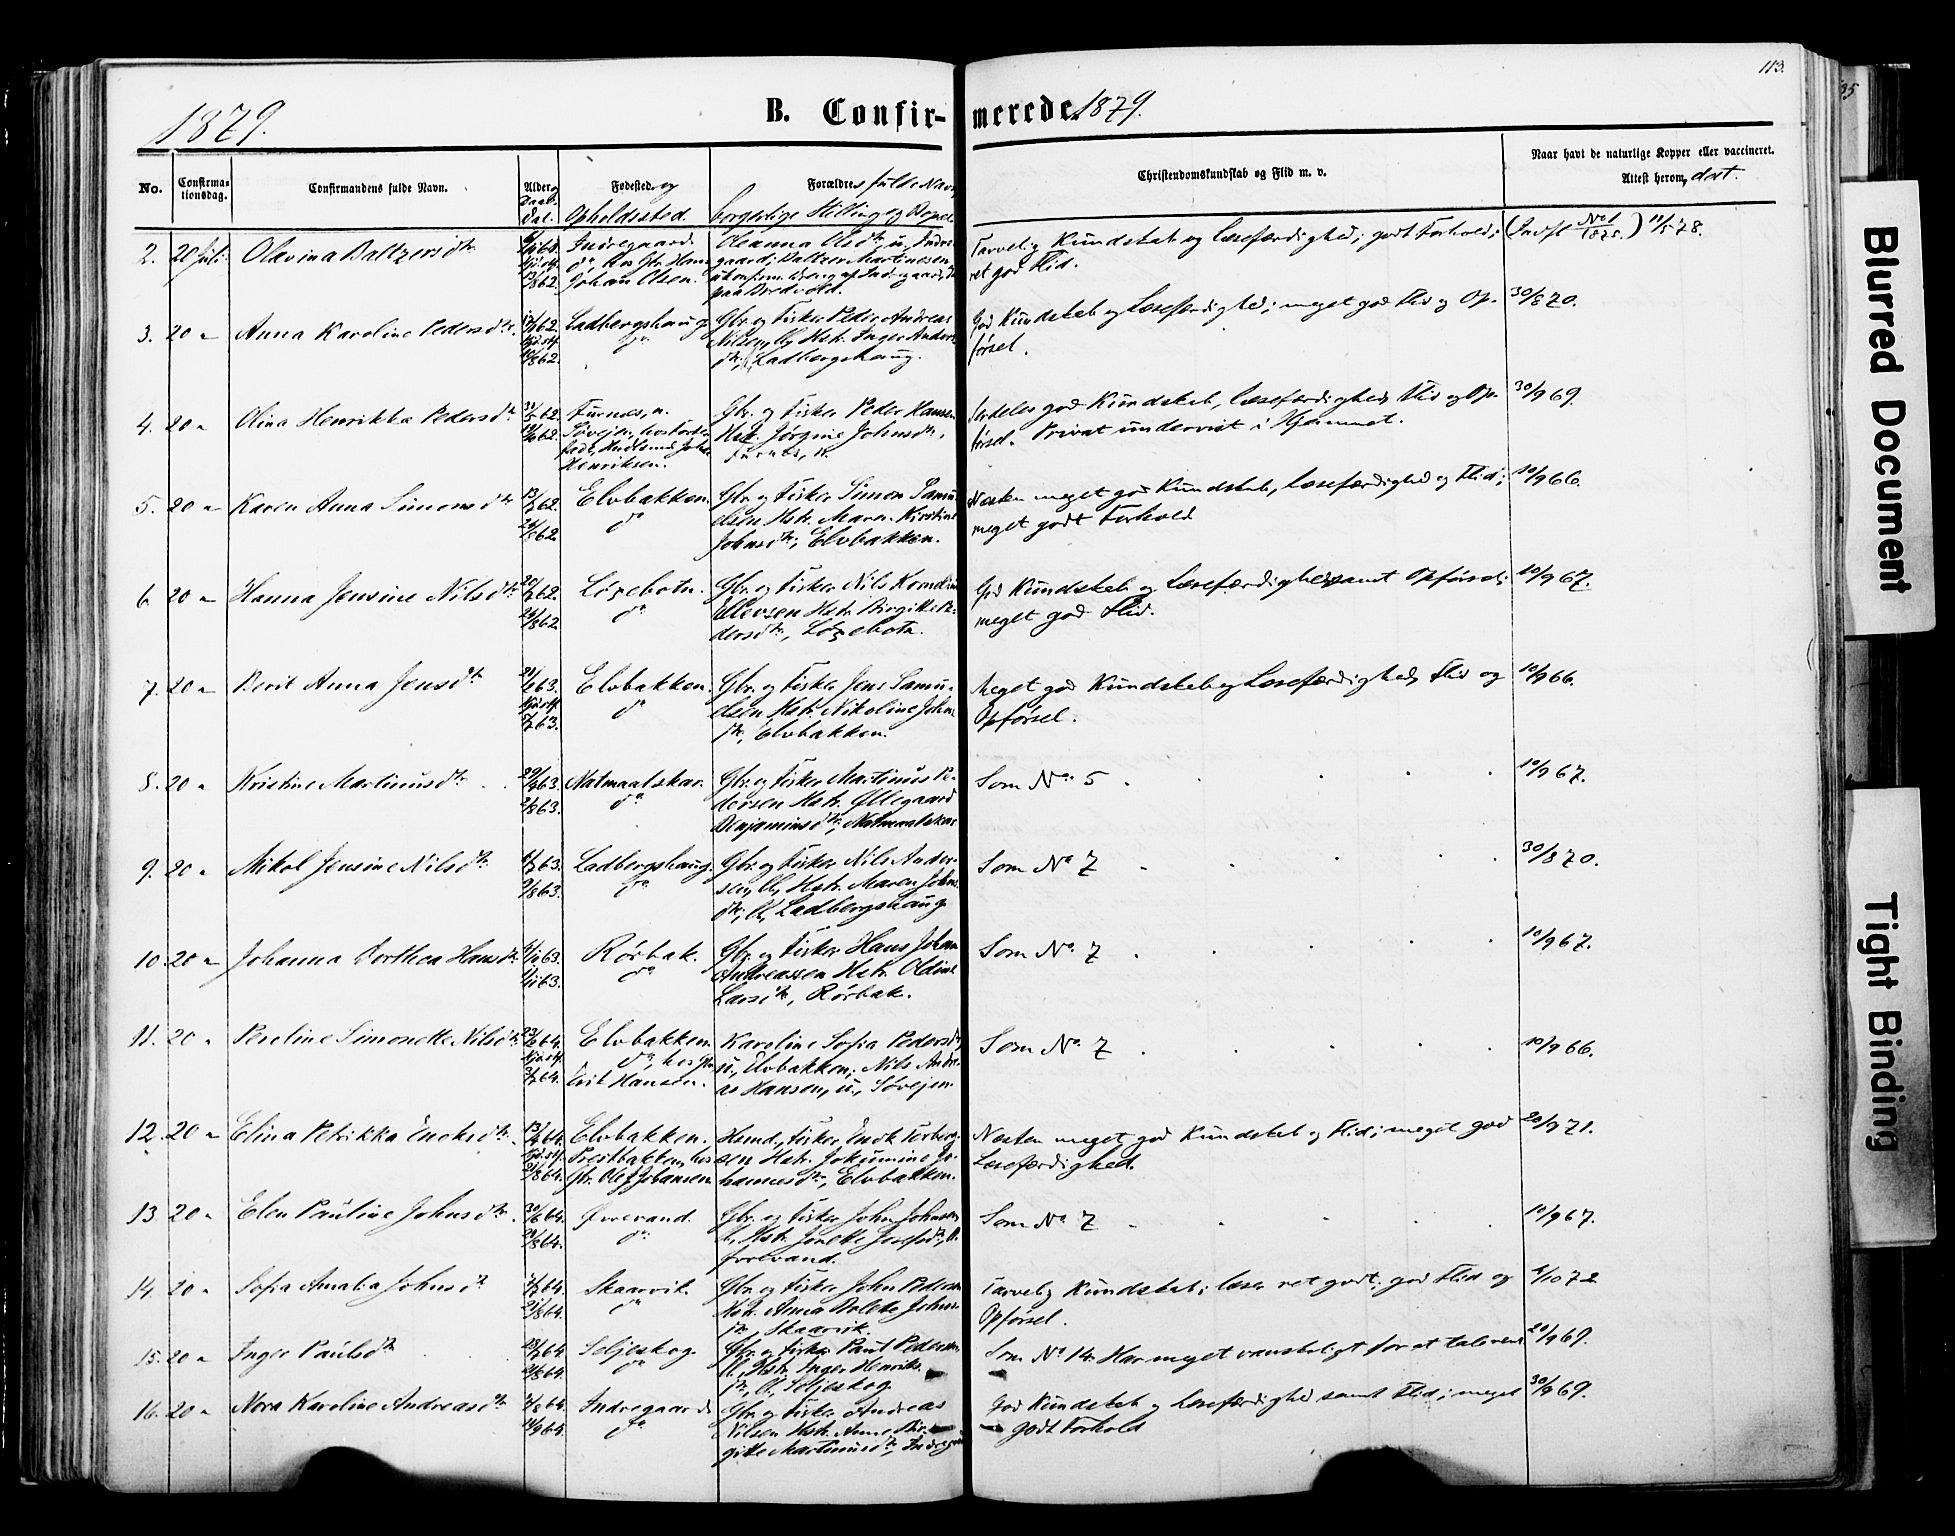 113.
1879.
B. Confir-
merede. 1879.
No.
Confirma-
tionsdag.
Confirmandens fulde Navn.
Alder og
Daab.
Dat.
Fødested. og
Opholdssted.
Forældres fulde Navn,
borgerlige Stilling og Bopæl
Christendomskundskab og Flid m. v.
Naar havt de naturlige Kopper eller vaccineret.
Attest herom, dat.
2. 20 Juli. Olavina Baltzersdtr.
Indregaard.
Johan Olsen.
Oleanna Olsdtr, u, Indre-
gaard; Baltzer Martinesen
paa Bredvold.
Tarvelig Kundskab og Læsefærdighed; godt Forhold;
ret god Flid.
(Indfl No 1/1875.) 11/5 78.
3. 20 " Anna Karoline Pedersdtr.
Ladbergshaug.
do
Gbr. og Fisker Peder Andreas
Nilsen, Hstr. Inger Anders
dtr, Ladbergshaug.
God Kundskab og Læsefærdighed; meget god Flid og Op-
førsel.
30/8 70.
4. 20 " Olina Henrikka Pedersdtr
Furnes, n.
Søvejen,
Henriksen.
Gbr. og Fisker Peder Hansen
Hstr. Jørgine Johnsdtr,
Furnes, n.
Særdeles god Kundskab, Læsefærdighed, Flid og Op-
førsel. Privat undervist i Hjemmet.
30/9 69.
5. 20 " Karen Anna Simonsdtr
Elvbakken.
do
Gbr. og Fisker Simon Samu-
elsen Hstr. Maren Kirstine
Johnsdtr, Elvbakken.
Næsten meget god Kundskab, Læsefærdighed og Flid;
meget godt Forhold
10/9 66.
6. 20 " Hanna Jensine Nilsdtr.
Løxebotn.
do
Gbr. og Fisker Nils Kornelius
Ellevsen Hstr. Birgitte Pe-
dersdtr, Løxebotn.
God Kundskab og Læsefærdighed samt Opførsel;
meget god Flid.
10/9 67.
7. 20 " Berit Anna Jensdtr
Elvbakken.
do
Gbr. og Fisker Jens Samu-
elsen Hstr. Nikoline Johns
dtr, Elvbakken.
Meget god Kundskab og Læsefærdighed, Flid og
Opførsel.
10/9 66.
8. 20 " Kristine Martinusdtr.
29/4 63.
Natmaalskar.
do
Gbr. og Fisker Martinus Pe-
dersen Hstr. Øllegaard
Benjaminsdtr, Natmaalskar
Som No. 5
10/9 67.
9. 20 " Mikol Jensine Nilsdtr.
Ladbergshaug.
do
Gbr. og Fisker Nils Ander-
sen, Hstr. Maren Johns
dtr, Ladbergshaug
Som No 7
30/8 70.
10. 20 " Johanna Dorthea Hansdtr.
Rørbak.
do
Gbr. og Fisker Hans Johan
Andreassen Hstr. Oldine
Larsdtr, Rørbak.
Som No. 7
10/9 67.
11. 20 " Pereline Simonette Nilsdtr.
Elvbakken.
do, hos Gbr
Erik Hansen.
Karoline Sofia Pedersdtr
u, Elvbakken; Nils Andre-
as Hansen, u, Søvejen
Som No 7
10/9 66.
12. 20 " Elina Petrikka Enoksdtr.
Elvbakken.
Prestbakken, hos
Gbr. Ole Johansen.
Husmd. og Fisker Enok Torberg-
sen Hstr. Jokumine Jo-
hannesdtr, Elvbakken.
Næsten meget god Kundskab og Flid; meget god
Læsefærdighed.
20/9 71.
13. 20 " Elen Pauline Johnsdtr.
30/6 64.
Øvrevand.
do
Gbr. og Fisker John Johnsen
Hstr. Jonette Josefsdtr,
Øvrevand.
Som No 7
10/9 67.
14. 20 " Sofia Amalia Johnsdtr
21/8 64.
Skaarvik
do
Gbr. og Fisker John Pedersen
Hstr. Anna Bolette Johns
dtr, Skaarvik.
Tarvelig Kundskab; læser ret godt; god Flid og
Opførsel.
15. 20 " Inger Paulsdtr
Seljeskog
do
Gbr. og Fisker Paul Pedersen
Hstr. Inger Henriks
dtr, Seljeskog.
Som No 14. Har meget vanskeligt for at tale rent
20/9 69.
16. 20 " Nora Karoline Andreasdtr
Indregaard
do
Gbr. og Fisker Andreas
Nilsen Hstr. Anne Bir-
gitte Martinusdtr, Indregaard
God Kundskab og Læsefærdighed samt Flid; meget
godt Forhold
30/9 69.
35
Blurred Document
Tight Binding